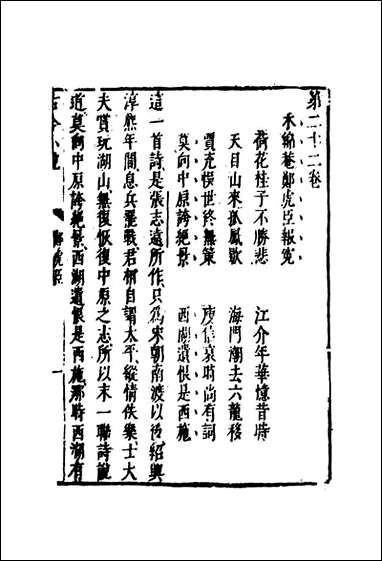 第二十二卷
木綿菴鄭虎臣報寃
荷花桂子不勝悲　江介年華憶昔時
天目山來孤鳳歇　海門潮去六龍移
賈充悞世終無策　庾信哀時尚有詞
莫向中原誇絕景　西湖遺恨是西施
這一首詩是張志遠所作只爲宋朝南渡以後紹興
淳熙年間息兵罷戰君相自謂太平縱情佚樂士大
夫賞玩湖山無復恢復中原之志所以末一聯詩說
道莫向中原誇絕景西湖遺恨是西施那時西湖有
古今小說